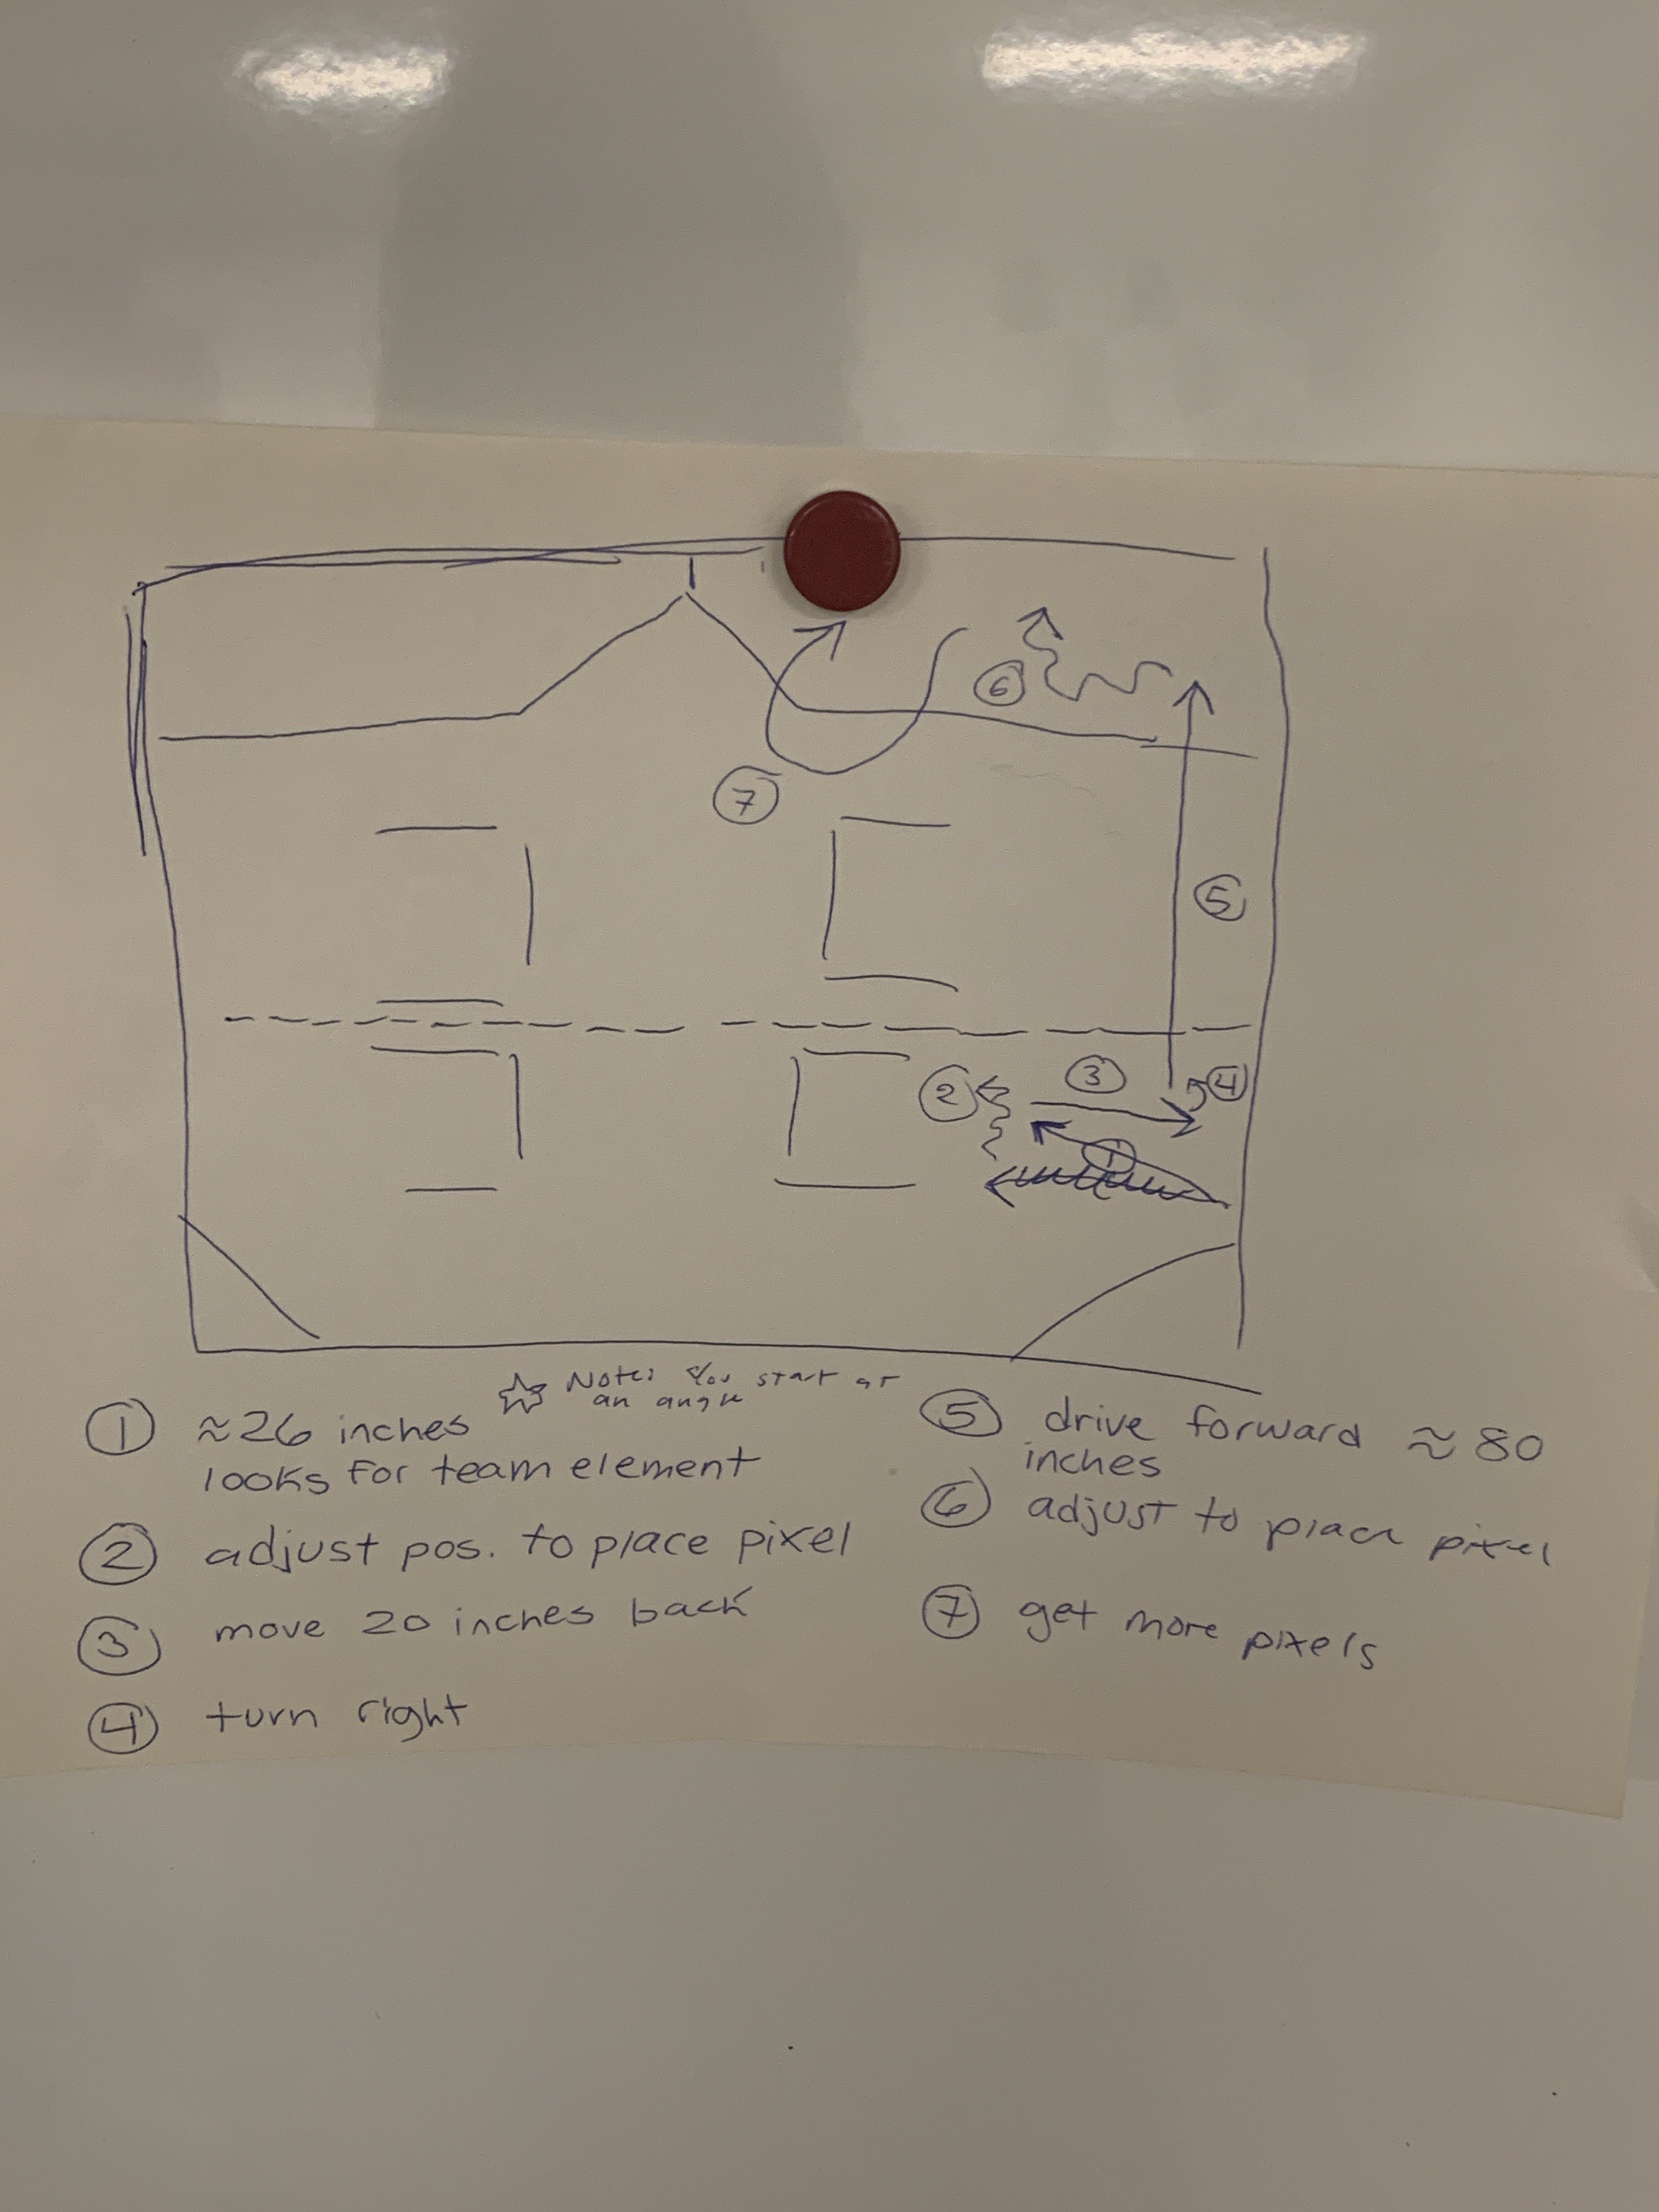 7
6
5
2
3
4
1
☆ Note: You start at
an angle
1 ≈26 inches
looks for team element
2 adjust pos. to place pixel
3 move 20 inches back
4 turn right
5 drive forward ≈ 80
inches
6 adjust to place pixel
7 get more pixels